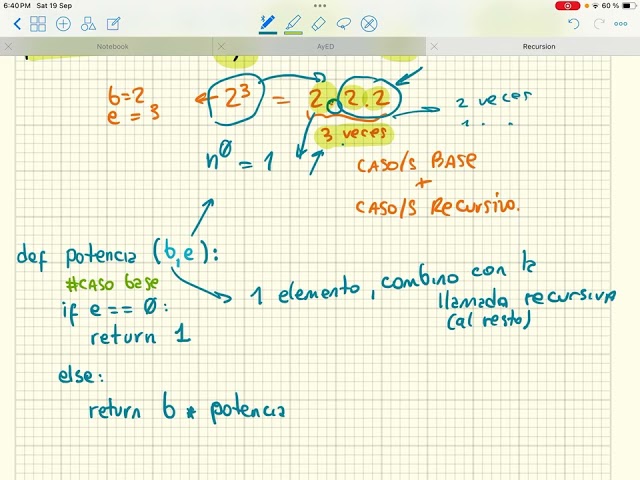 6:40 PM Sat 19 Sep
60 %
Notebook
AyED
Recursion
b=2
e=3
2³ = 2.2.2
2 veces
1 . .
3 veces
n⁰ = 1
CASO/S BASE
+
CASO/S RECURSIVO.
def potencia (b,e):
#CASO base
if e == 0:
return 1
1 elemento, combino con la
llamada recursiva
(al resto)
else:
return b * potencia